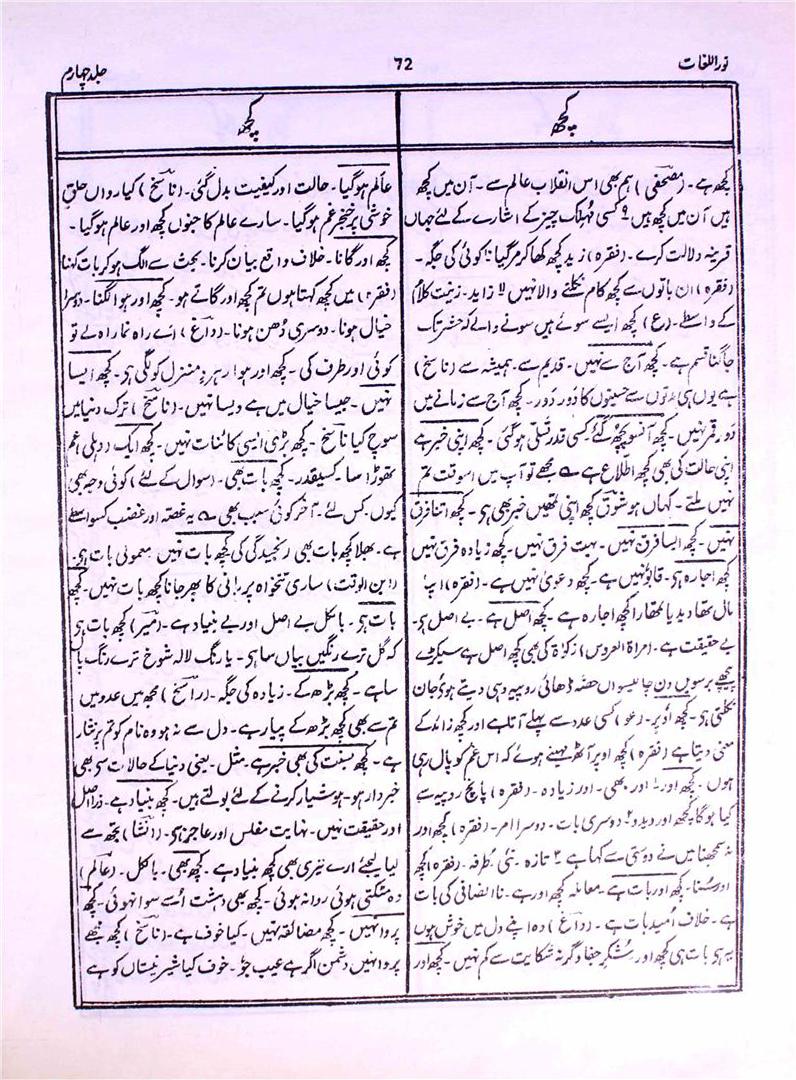 نور اللغات
72
جلد چہارم
کچھ
کچھ
کچھ ہے۔ (مصحفی) ہم بھی اس انقلاب عالم سے۔ آن میں کچھ
ہیں آن میں کچھ ہیں ۹ کسی مُہلک چیز کے اشارے کے لئے جہاں
قرینہ دلالت کرے۔ (فقرہ) زید کچھ کھا کر مر گیا ۱۰ کوئی کی جگہ۔
(فقرہ) ان باتوں سے کچھ کام نکلنے والا نہیں لا زاید۔ زینت کلام
کے واسطے۔ (ع) کچھ ایسے سوئے ہیں سونے والے کہ حشر تک
جاگنا قسم ہے۔ کچھ آج سے نہیں۔ قدیم سے۔ ہمیشہ سے (ناسخ)
ہے یوں ہی مدتوں سے حسینوں کا دور دور۔ کچھ آج سے زمانے میں
دَور قمر نہیں۔ کچھ آنسو پچھ گئے کسی قدر تسلی ہو گئی۔ کچھ اپنی خبر ہے
اپنی حالت کی بھی کچھ اطلاع ہے ؎ مجھے تو آپ میں اسوقت تم
نہیں ملتے۔ کہاں ہو شوق کچھ اپنی تمھیں خبر بھی ہے۔ کچھ اتنا فرق
نہیں۔ کچھ ایسا فرق نہیں۔ بہت فرق نہیں۔ کچھ زیادہ فرق نہیں
کچھ اجارہ ہے۔ قابو نہیں ہے۔ کچھ دعویٰ نہیں ہے۔ (فقرہ) اپنا
مال تھا دیدیا تمھارا کچھ اجارہ ہے۔ کچھ اصل ہے۔ بے اصل ہے۔
بے حقیقت ہے۔ (مراۃ العروس) زکوٰۃ کی بھی کچھ اصل ہے سیکڑے
پیچھے برسویں دن چالیسواں حصّہ ڈھائی روپیہ وہی دیتے ہوئے جان
نکلتی ہے۔ کچھ اُوپر۔ (عو) کسی عدد سے پہلے آتا ہے اور کچھ زائد کے
معنی دیتا ہے (فقرہ) کچھ اوپر آٹھ مہینے ہوئے کہ اس غم کو پال رہی
ہوں۔ کچھ اور ۱ اور بھی۔ اور زیادہ۔ (فقرہ) پانچ روپیہ سے
کیا ہو گا کچھ اور دیدو ۲ دوسری بات۔ دوسرا امر۔ (فقرہ) کچھ اور
نہ سمجھنا میں نے دوستی سے کہا ہے ۳ تازہ۔ نئی۔ طُرفہ۔ (فقرہ) کچھ
اور سُنا۔ کچھ اور بات ہے۔ معاملہ کچھ اور ہے۔ نا انصافی کی بات
ہے۔ خلاف اُمید بات ہے۔ (داغ) وہ اپنے دل میں خوش ہوں
یہ ہے بات ہی کچھ اور۔ سُشکر جفا وگرنہ شکایت سے کم نہیں۔ کچھ اور
عالم ہو گیا۔ حالت اور کیفیت بدل گئی۔ (ناسخ) کیا رواں حلقِ
خوشی پر خنجرِ غم ہو گیا۔ سارے عالم کا جنوں کچھ اور عالم ہو گیا۔
کچھ اور گانا۔ خلاف واقع بیان کرنا۔ بحث سے الگ ہو کر بات کہنا
(فقرہ) میں کچھ کہتا ہوں تم کچھ اور گاتے ہو۔ کچھ اور ہوا لگنا۔ دوسرا
خیال ہونا۔ دوسری دُھن ہونا۔ (داغ) اے راہ نما راہ لے تو
کوئی اور طرف کی۔ کچھ اور ہوا رہروِ منزل کو لگی ہے۔ کچھ ایسا
نہیں۔ جیسا خیال میں ہے ویسا نہیں۔ (ناسخ) ترک دنیا میں
سوچ کیا ناسخ۔ کچھ بڑی ایسی کائنات نہیں۔ کچھ ایک (دہلی) عم
تھوڑا سا۔ کسیقدر۔ کچھ بات بھی۔ (سوال کے لئے) کوئی وجہ بھی
کیوں۔ کس لئے۔ آخر کوئی سبب بھی ؎ یہ غصّہ اور غضب کسواسطے
ہے۔ بھلا کچھ بات بھی رنجیدگی کی کچھ بات نہیں معمولی بات ہے۔
(ابن الوقت) ساری تنخواہ پر پانی کا پھر جانا کچھ بات نہیں۔ کچھ
بات ہے۔ بالکل بے اصل اور بے بنیاد ہے۔ (میر) کچھ بات ہے
کہ گل ترے رنگیں بیاں سا ہے۔ یا رنگ لالہ شوخ ترے رنگ پاں
سا ہے۔ کچھ بڑھ کے۔ زیادہ کی جگہ۔ (راسخ) مجھ میں عدو میں
تم سے بھی کچھ بڑھ کے پیار ہے۔ دل سے نہ ہو وہ نام کو تم پر نثار
ہے۔ کچھ بسنت کی بھی خبر ہے۔ مثل۔ یعنی دنیا کے حالات سے بھی
خبردار ہو۔ ہوشیار کرنے کے لئے بولتے ہیں۔ کچھ بنیاد ہے۔ ذرا اصل
اور حقیقت نہیں۔ نہایت مفلس اور عاجز ہے۔ (انشا) تجھ سے
لیا لیجئے ارے تیری بھی کچھ بنیاد ہے۔ کچھ بھی۔ بالکل۔ (عالم)
وہ سکتی ہوئی روانہ ہوئی۔ کچھ بھی دہشت اُسے سوا نہ ہوئی۔ کچھ
پروا نہیں۔ کچھ مضائقہ نہیں۔ کیا خوف ہے۔ (ناسخ) کچھ مجھے
پروا نہیں دشمن اگر ہے عیب جو۔ خوف کیا شیر نیستاں کو ہے